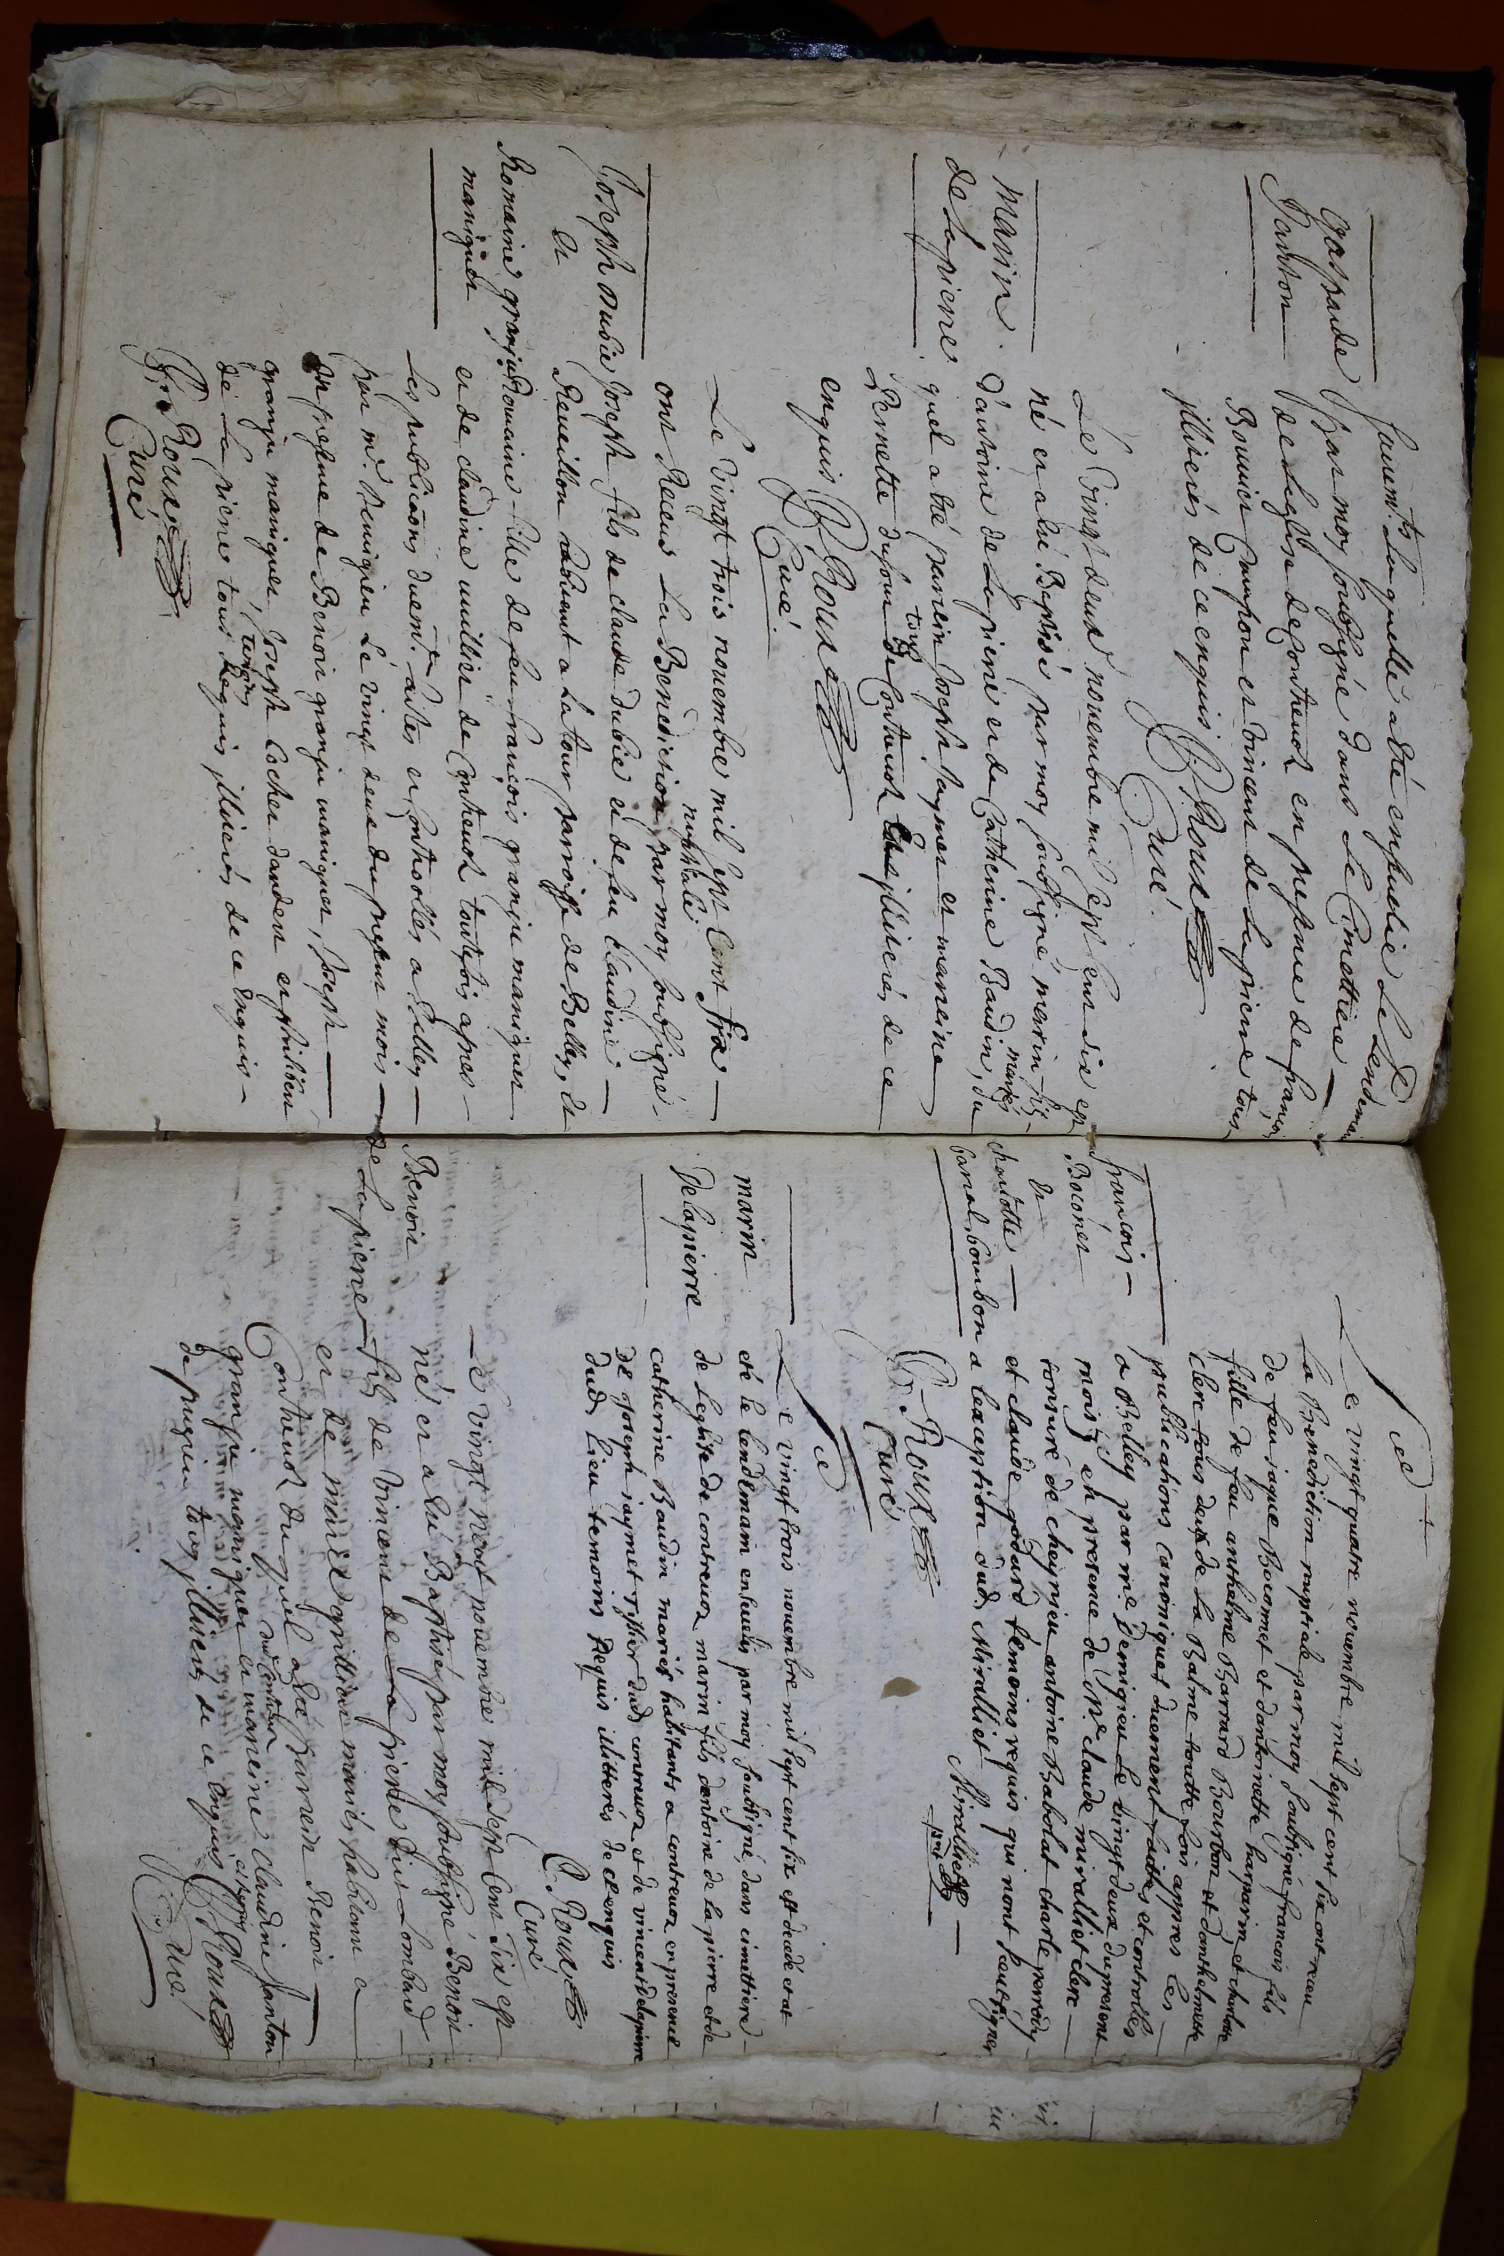 Sacrem.ts laquelle a été ensevelie le lendemain
Gasparde
Panton
par moy soubsigné dans le Cimettiere
de leglise de Contrevoz en presence de françois
Bouvier Champion et vincent de Lapierre tous
illiterés de ce enquis B. Roux
Curé
Marin
de Lapierre
Le vingt deux novembre mil sept cent six est
né et a été Baptisé par moy soubsigné marin fils
d'antoine de Lapierre et de Catherine Baudin mariés, du
quel a été parrein Joseph Jaymet et marreine
Pernette dufour tous de Contrevoz illiterés de ce
enquis B. Roux
Curé
Joseph dubie
et
Romaine granju
maniguet
Le vingt trois novembre mil sept cent six
ont Receus La Benediction nuptiale par moy soubsigné
Joseph fils de claude dubie et de feu claudine
Reveillon habitant a La tour parroisse de Belley, et
Romaine fille de feu françois granju maniguet
et de claudine millire de Contrevoz toutefois apres
Les publications duem.t faites et controollés a Belley
par m.r demigieu Le vingt deux du present mois
en presence de Benoit granju maniguet, Joseph
granju maniguet, Joseph Cochet dandert et philibert
de La pierre temoins tous Requis illiterés de ce enquis
B. Roux
Curé
François
Bocônet
et
charlotte
barral bourbon
Le vingt quatre novembre mil sept cent six ont receu
la Benediction nuptiale par moy soubsigné francois fils
de feu jaque Boconnet et dantoinette harparin et charlotte
fille de feu anthelme Barrard Bourbon et danthelmette
clerc tous deux de La Balme toutte fois appres les
publications canoniques duement faittes et controlles
a Belley par m.e Demigieu Le vingt deux du present
mois en presence de M.e claude miralliet clerc
tonsuré de cheynieu antoine Rabolat charle perroudy
et claude godard temoins requis qui nont sceu signer
a lexception dud. Miralliet Miralliet
B. Roux
Curé
marin
Delapierre
Le vingt trois novembre mil sept cent six est decedé et at
eté le lendemain enseveli par moy soubsigné, dans cimettiere
de Leglise de contrevoz marin fils dantoine de la pierre et de
catherine Baudin mariés habitants a contrevoz en presence
de joseph jaymet tissier dud. contrevoz et de vincent delapierre
dud. Lieu temoins Requis illitterés de ce enquis
B. Roux
Curé
Benoit
de Lapierre
Le vingt neuf novembre mil sept cent six est
né et a eté Baptisé par moy soubsigné Benoit
fils de vincent de la pierre dit Lombard
et de marie grillion mariés habitant a
Contrevoz duquel a été parrein Benoit
granju maniguet et marreine claudine panton
de pugieu tous illiterés de ce enquis B. Roux
Curé